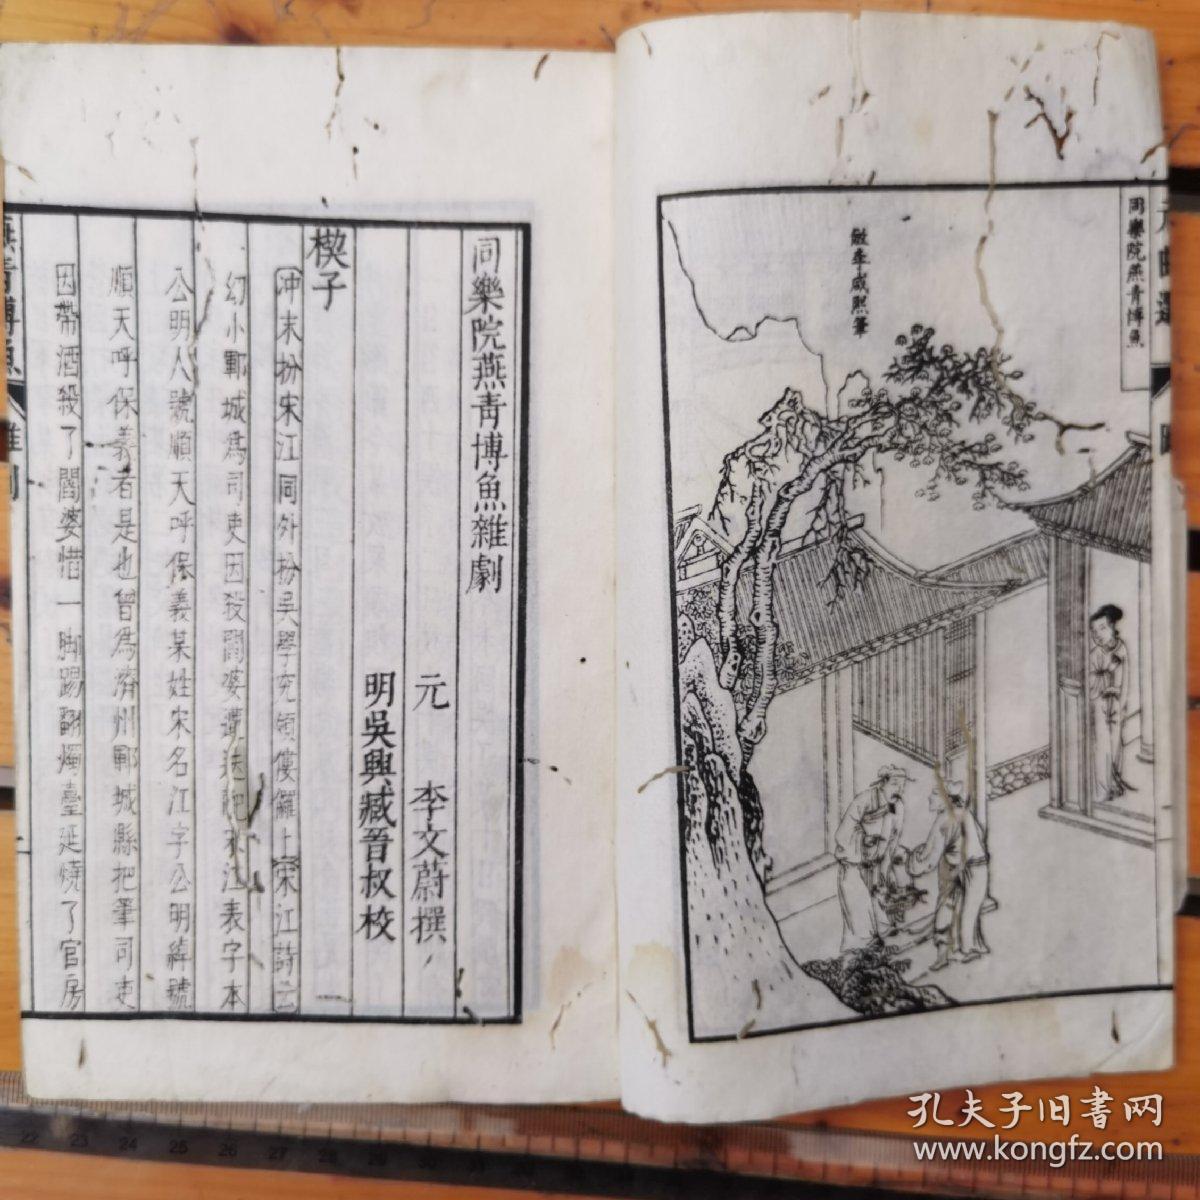 元曲選
同樂院燕青博魚
倣李咸熙筆
同樂院燕青博魚雜劇
元 李文蔚撰
明吳興臧晉叔校
楔子
冲末扮宋江同外扮吳學究領僂儸上宋江詩云
幼小鄆城為司吏因殺閻婆遭迭配宋江表字本
公明人號順天呼保義某姓宋名江字公明綽號
順天呼保義者是也曾為濟州鄆城縣把筆司吏
因帶酒殺了閻婆惜一脚踢翻燭臺延燒了官房
燕青博魚
雜劇
孔夫子旧书网
www.kongfz.com
22 23 24 25 26 27 28 29 30 31